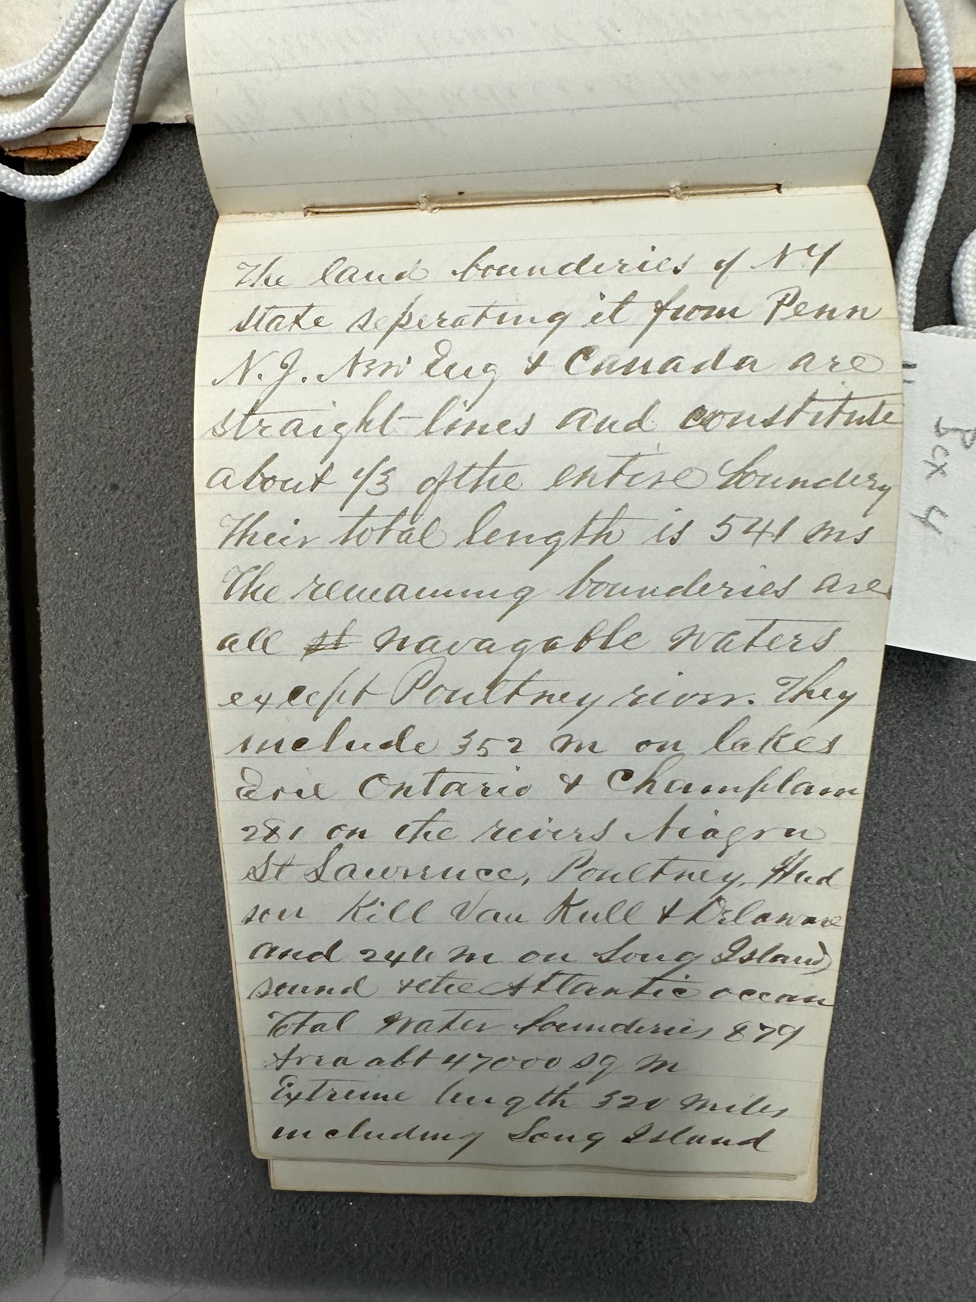 The land bounderies of N.Y
state seperating it from Penn
N.J. New Eng & Canada are
straight lines and constitute
about 1/3 of the entire boundery
Their total length is 541 ms
The remaining bounderies are
all st navagable waters
except Poultney river. They
include 352 m on lakes
Erie Ontario & Champlain
281 on the rivers Niagra
St Lawrence, Poultney, Hud
son Kill Van Kull & Delaware
and 246 m on Long Island
sound & the Atlantic ocean
Total water bounderies 879
Area abt 47000 sq m
Extreme length 320 miles
including Long Island
Box 4